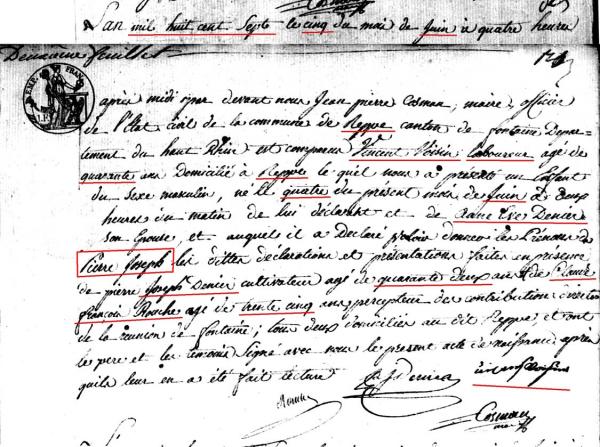 Cosman
L'an mil huit cent Sept le cinq du mois de Juin à quatre heures
Deuxieme feuillet
EMP. FRAN.
après midi par devant nous Jean pierre Cosman, maire, officier
de l'Etat civil de la commune de Reppe canton de fontaine Depar-
tement du haut Rhin est comparu Vincent Voisin laboureur agé de
quarante ans Domicilié à Reppe le quel nous a présenté un Enfant
du Sexe masculin, né le quatre du présent mois de Juin à deux
heures du matin de lui déclarant et de anne Eve Denier
son Epouse, et auquel il a Déclaré vouloir donner les Prénoms de
Pierre Joseph les dittes déclarations et présentations faites en présence
de pierre Joseph Denier cultivateur agé de quarante deux ans & de Claude
françois Roche agé de trente cinq ans percepteur des contributions
de la réunion de fontaine; tous deux domiciliés au dit Reppe, et ont
le pere et les temoins Signé avec nous le present acte de naissance après
qu'il leur en a été fait lecture
Cosman
maire